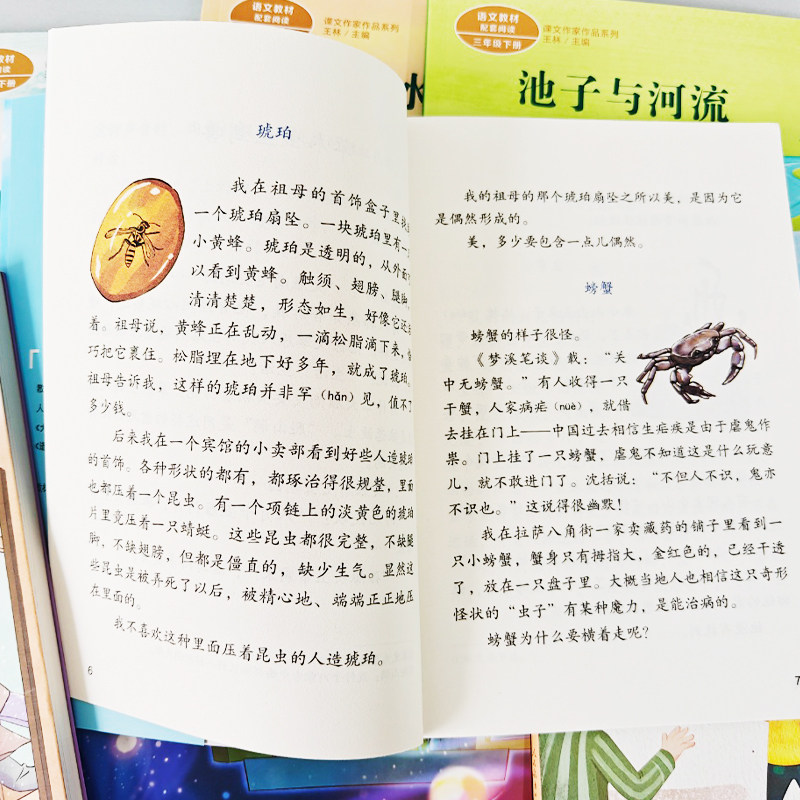 语文教材
配套阅读
课文作家作品系列
王林/主编
语文教材
配套阅读
三年级下册
课文作家作品系列
王林/主编
池子与河流
下册
琥珀
我在祖母的首饰盒子里找
一个琥珀扇坠。一块琥珀里有一
小黄蜂。琥珀是透明的，从外面
以看到黄蜂。触须、翅膀、腿脚
清清楚楚，形态如生，好像它还
着。祖母说，黄蜂正在乱动，一滴松脂滴下来，恰
巧把它裹住。松脂埋在地下好多年，就成了琥珀。
祖母告诉我，这样的琥珀并非罕（hǎn）见，值不了
多少钱。
后来我在一个宾馆的小卖部看到好些人造琥珀
的首饰。各种形状的都有，都琢治得很规整，里面
也都压着一个昆虫。有一个项链上的淡黄色的琥珀
片里竟压着一只蜻蜓。这些昆虫都很完整，不缺腿
脚，不缺翅膀，但都是僵直的，缺少生气。显然这
些昆虫是被弄死了以后，被精心地、端端正正地压
在里面的。
我不喜欢这种里面压着昆虫的人造琥珀。
6
我的祖母的那个琥珀扇坠之所以美，是因为它
是偶然形成的。
美，多少要包含一点儿偶然。
螃蟹
螃蟹的样子很怪。
《梦溪笔谈》载：“关
中无螃蟹。”有人收得一只
干蟹，人家病疟（nüè），就借
去挂在门上——中国过去相信生疟疾是由于疟鬼作
祟。门上挂了一只螃蟹，疟鬼不知道这是什么玩意
儿，就不敢进门了。沈括说：“不但人不识，鬼亦
不识也。”这说得很幽默！
我在拉萨八角街一家卖藏药的铺子里看到一
只小螃蟹，蟹身只有拇指大，金红色的，已经干透
了，放在一只盘子里。大概当地人也相信这只奇形
怪状的“虫子”有某种魔力，是能治病的。
螃蟹为什么要横着走呢？
7